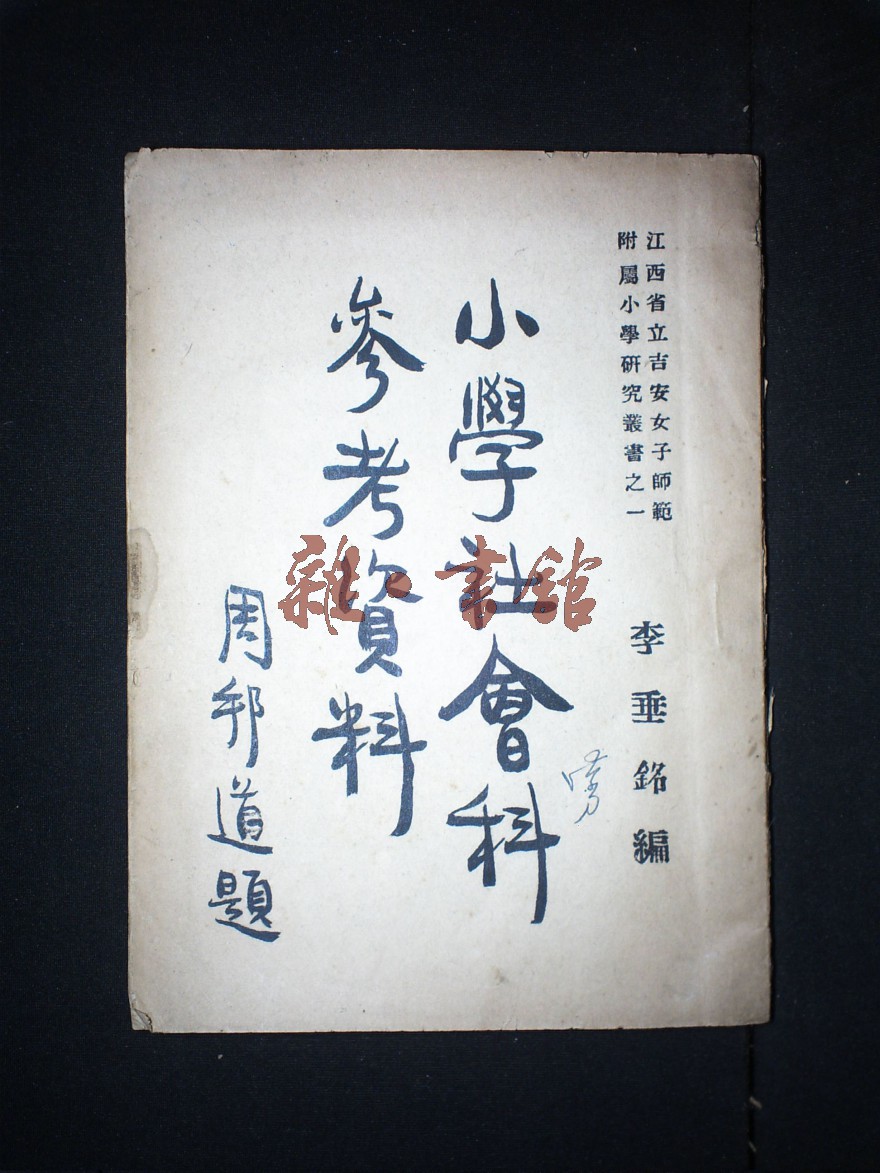 江西省立吉安女子師範
附屬小學研究叢書之一
李垂銘編
小學社會科
參考資料
周邦道題
雜·書館